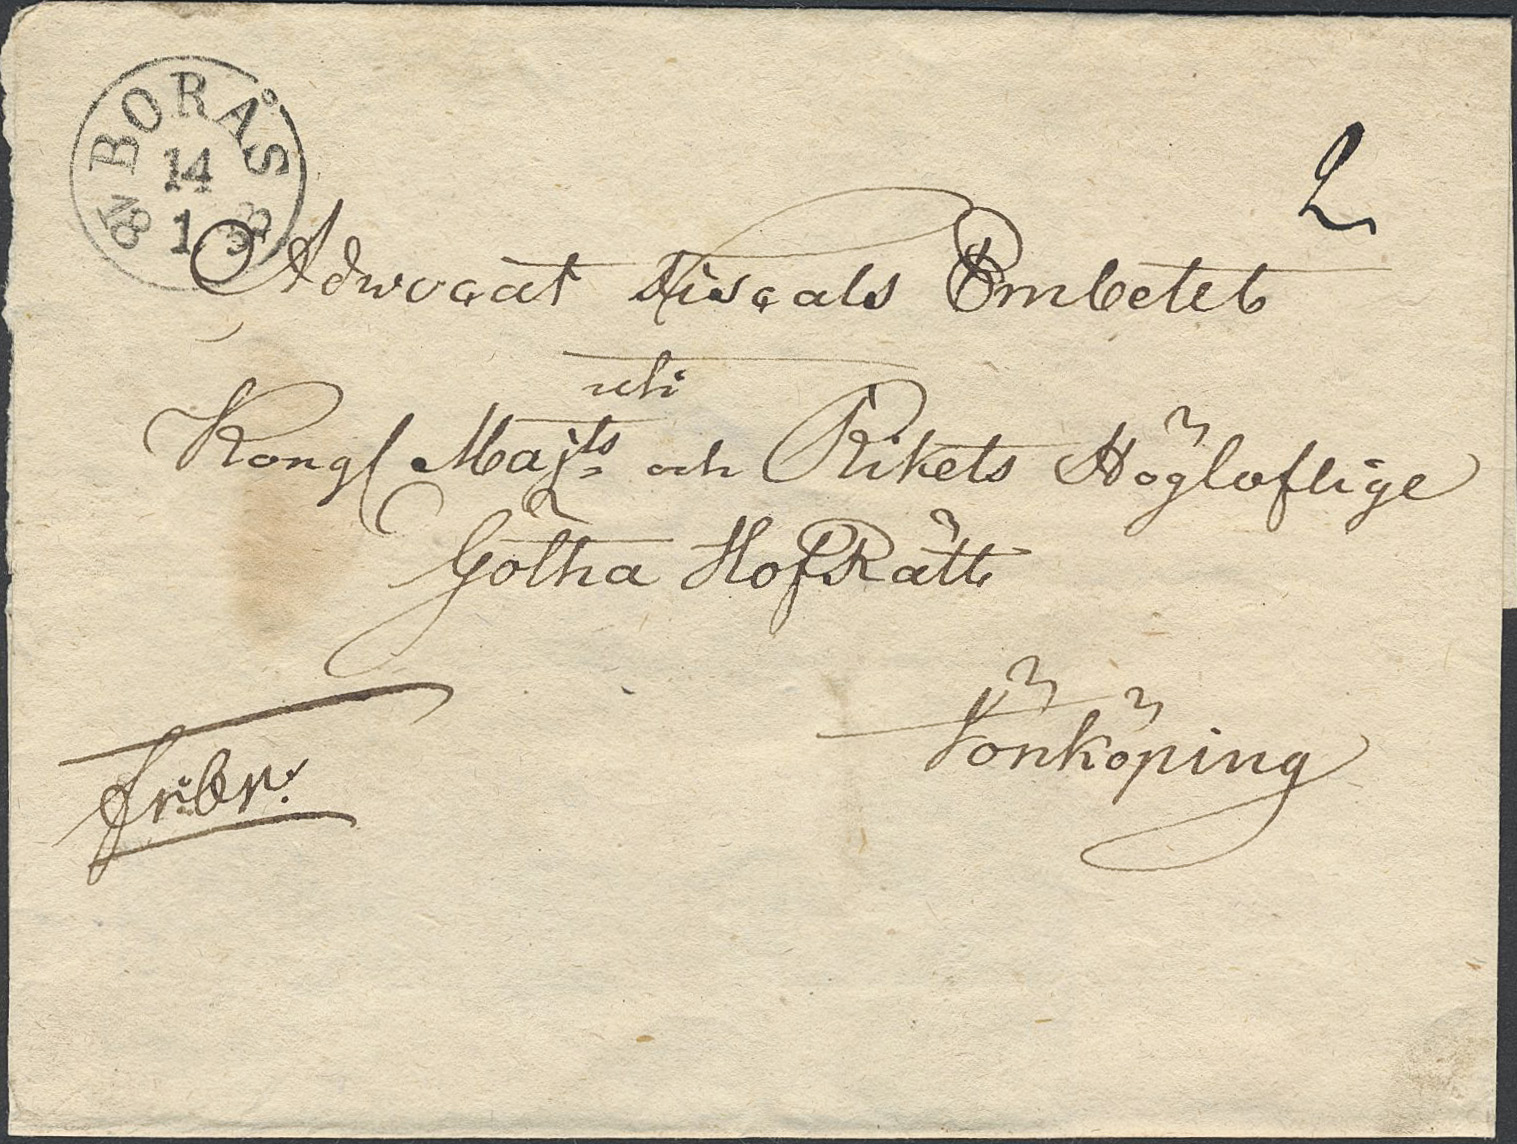 BORÅS
14
1
2
Advocat Fiscals Embetet
uti
Kongl Majts och Rikets Högloflige
Götha HofRätt
Jönköping
fribr.